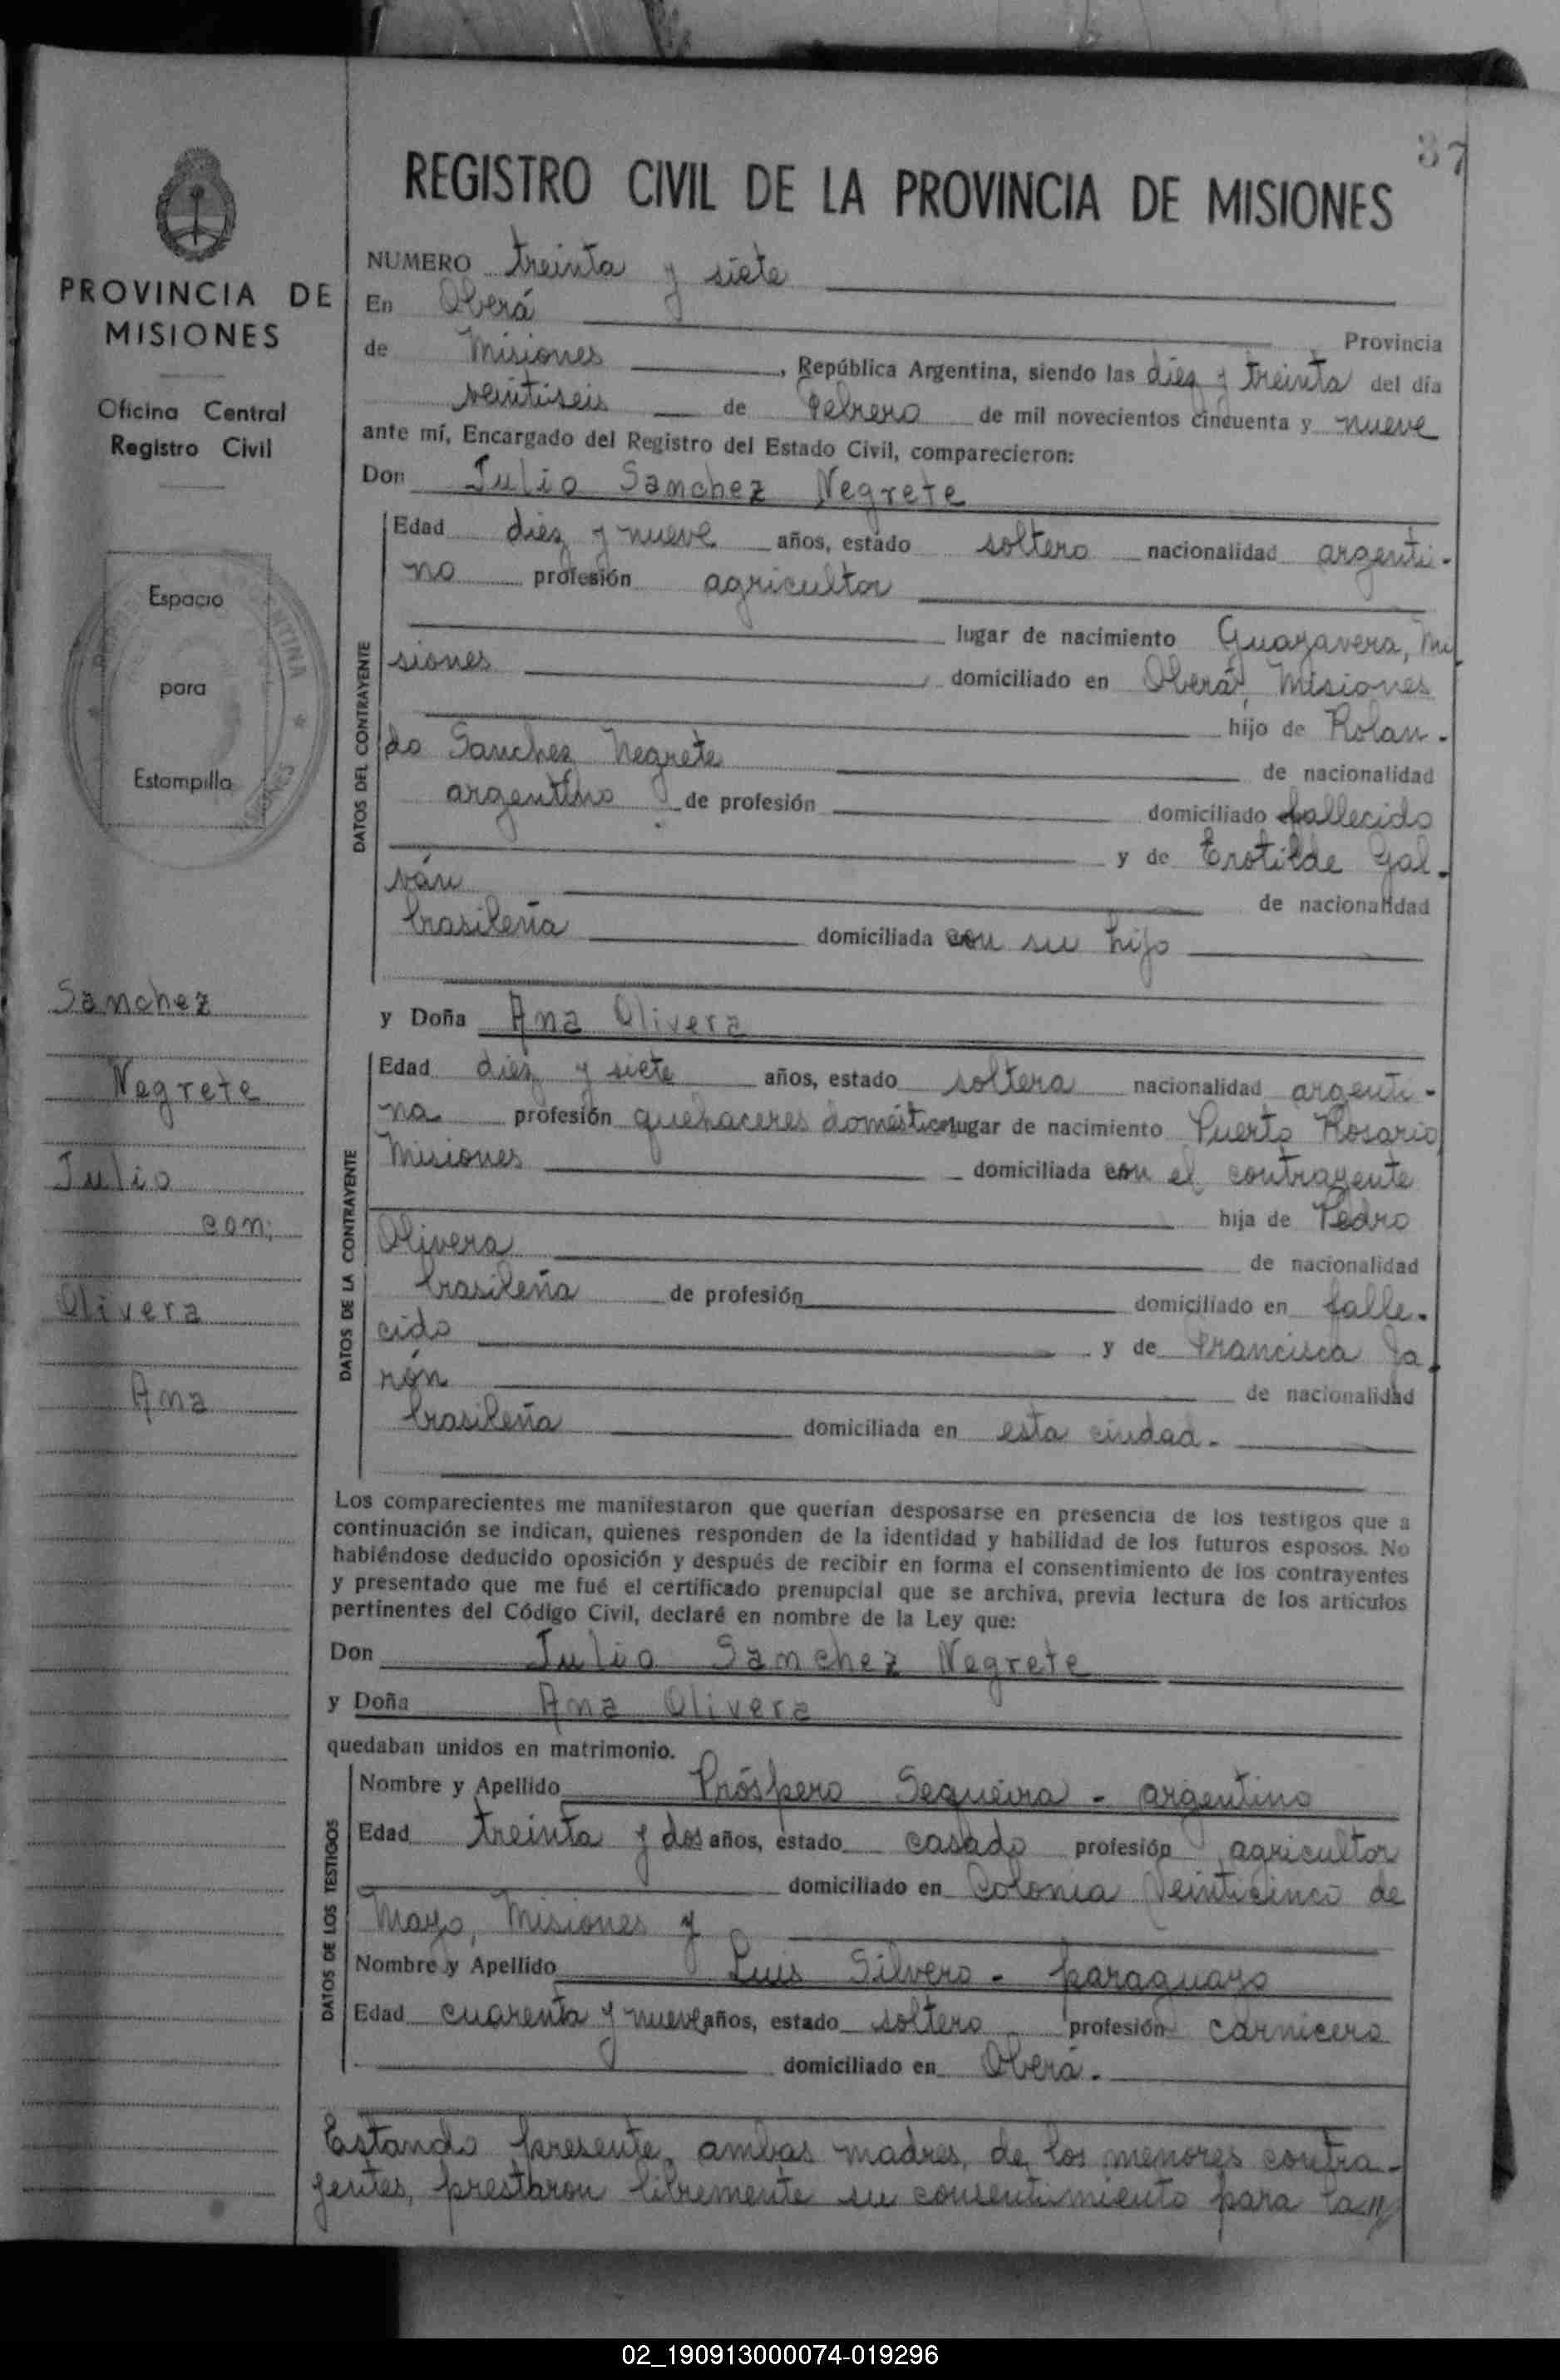 37
REGISTRO CIVIL DE LA PROVINCIA DE MISIONES
PROVINCIA DE
MISIONES
Oficina Central
Registro Civil
Espacio
para
Estampilla
Sanchez
Negrete
Julio
con;
Olivera
Ana
NUMERO treinta y siete
En Oberá Provincia
de Misiones, República Argentina, siendo las diez y treinta del día
veintiseis de Febrero de mil novecientos cincuenta y nueve
ante mí, Encargado del Registro del Estado Civil, comparecieron:
Don Julio Sanchez Negrete
DATOS DEL CONTRAYENTE
Edad diez y nueve años, estado soltero nacionalidad argenti-
no profesión agricultor
lugar de nacimiento Guayavera, Mi
siones domiciliado en Oberá, Misiones
hijo de Rolan-
do Sanchez Negrete de nacionalidad
argentino de profesión domiciliado fallecido
y de Erotilde Gal-
ván de nacionalidad
brasileña domiciliada con su hijo
y Doña Ana Olivera
DATOS DE LA CONTRAYENTE
Edad diez y siete años, estado soltera nacionalidad argenti-
na profesión quehaceres domésticos lugar de nacimiento Puerto Rosario
Misiones domiciliada con el contrayente
hija de Pedro
Olivera de nacionalidad
brasileña de profesión domiciliado en falle-
cido y de Francisca
rón de nacionalidad
brasileña domiciliada en esta ciudad.
Los comparecientes me manifestaron que querían desposarse en presencia de los testigos que a
continuación se indican, quienes responden de la identidad y habilidad de los futuros esposos. No
habiéndose deducido oposición y después de recibir en forma el consentimiento de los contrayentes
y presentado que me fué el certificado prenupcial que se archiva, previa lectura de los artículos
pertinentes del Código Civil, declaré en nombre de la Ley que:
Don Julio Sanchez Negrete
y Doña Ana Olivera
quedaban unidos en matrimonio.
DATOS DE LOS TESTIGOS
Nombre y Apellido Próspero Sequeira - argentino
Edad treinta y dos años, estado casado profesión agricultor
domiciliado en Colonia Veinticinco de
Mayo, Misiones y
Nombre y Apellido Luis Silvero - paraguayo
Edad cuarenta y nueve años, estado soltero profesión carnicero
domiciliado en Oberá.
Estando presente, ambas madres, de los menores contra-
yentes, prestaron libremente su consentimiento para la //
02_190913000074-019296